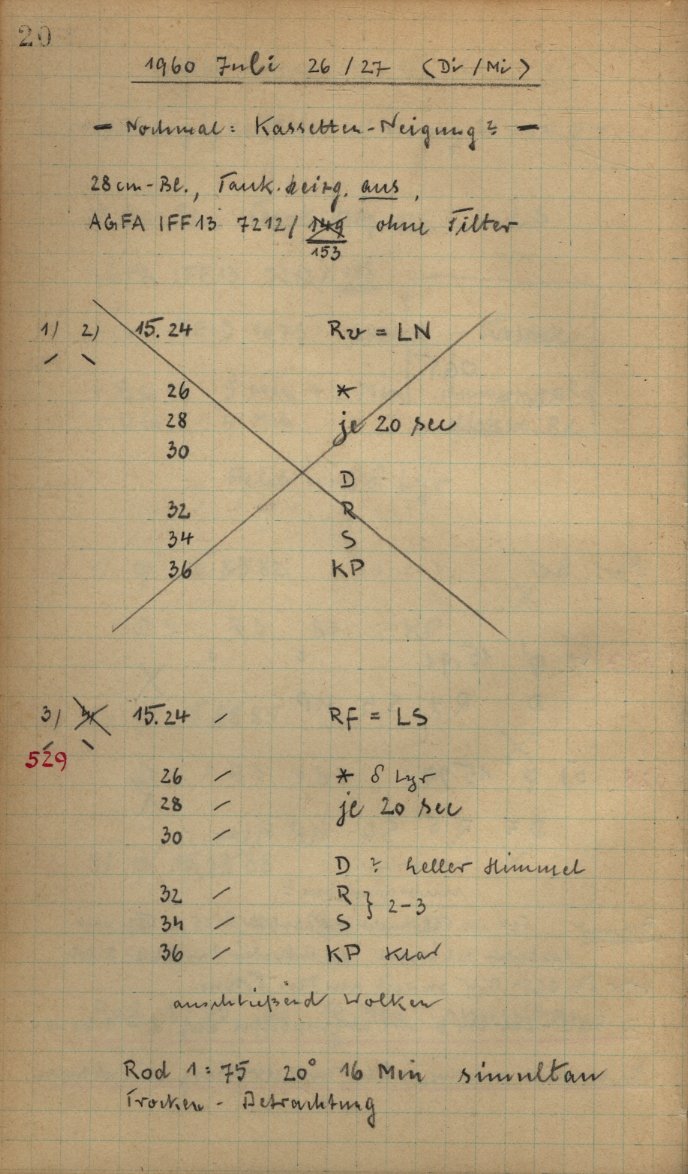 20
1960 Juli 26/27 (Di/Mi)
– Nochmal: Kassetten-Neigung? –
28cm-Bl., Tank. aus,
AGFA IFF13 7212/149 ohne Filter
153
1) 2) 15.24 Rv = LN
26 *
28 je 20 sec
30
D
32 R
34 S
36 KP
3) 4) 15.24 Rf = LS
529
26 * δ Lyr
28 je 20 sec
30
D ? heller Himmel
32 R } 2-3
34 S
36 KP klar
anschließend Wolken
Rod 1:75 20° 16 Min simultan
Trocken-Betrachtung